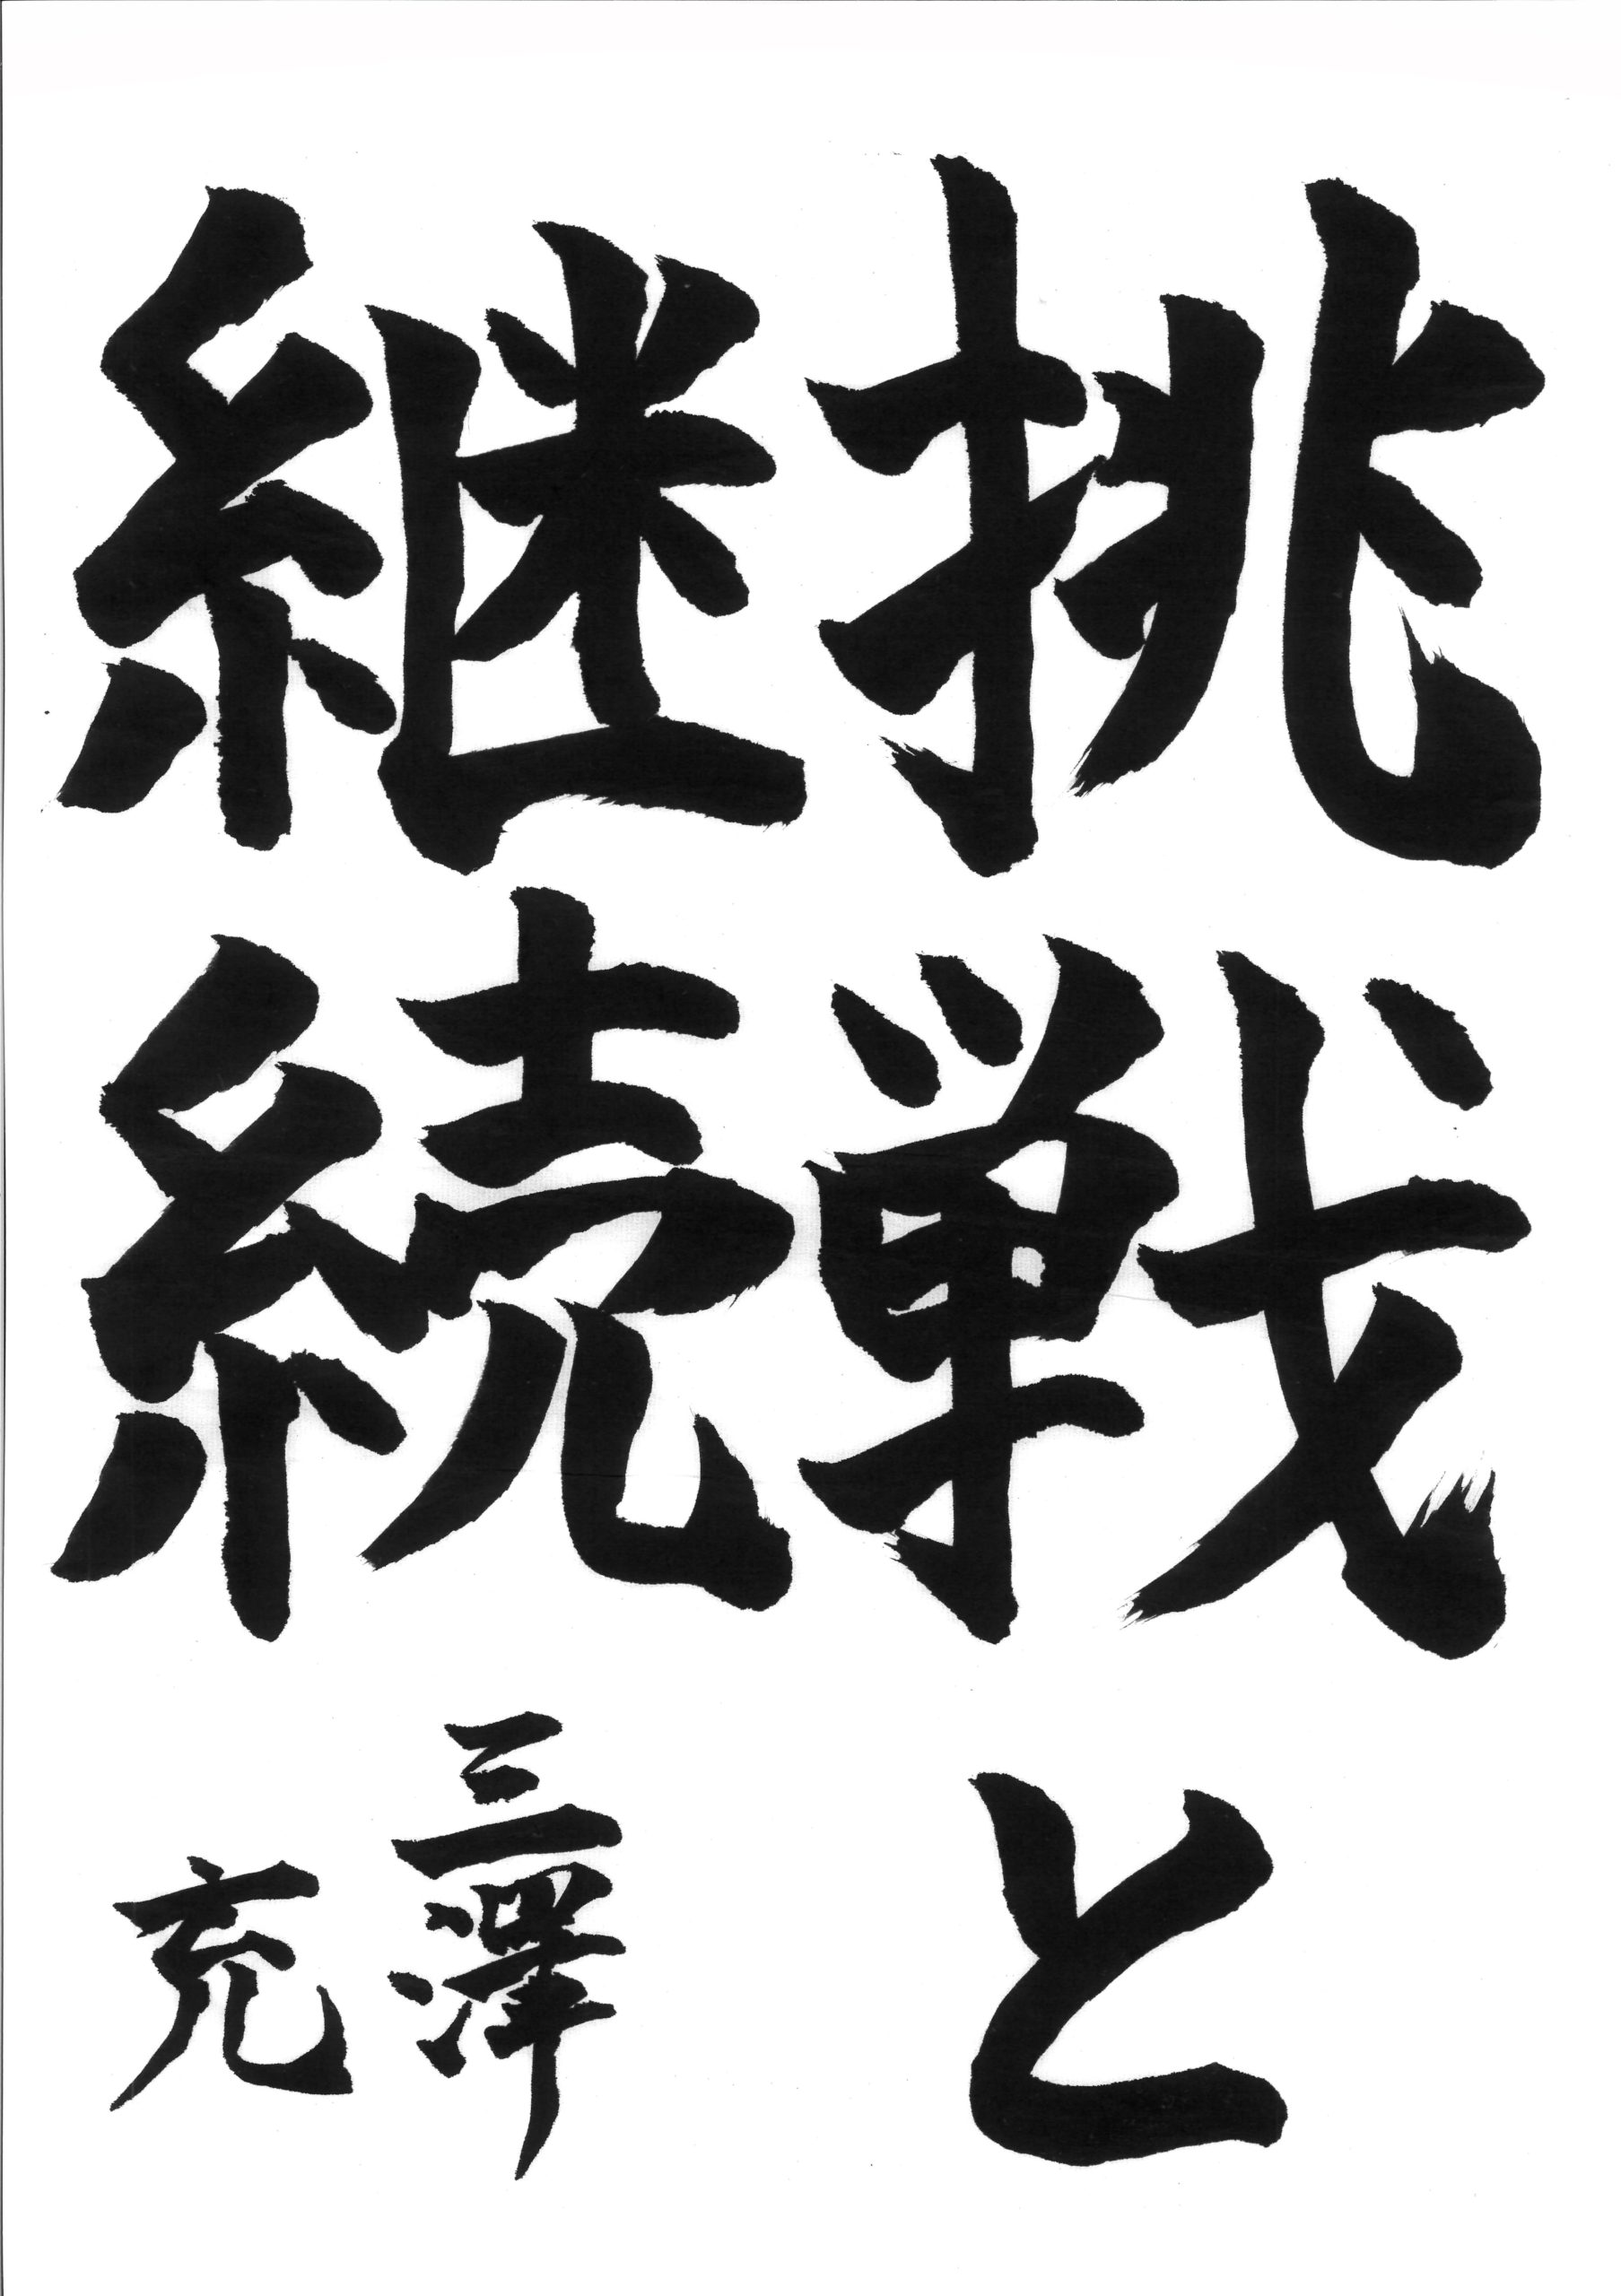 挑戦と
継続
三澤
充